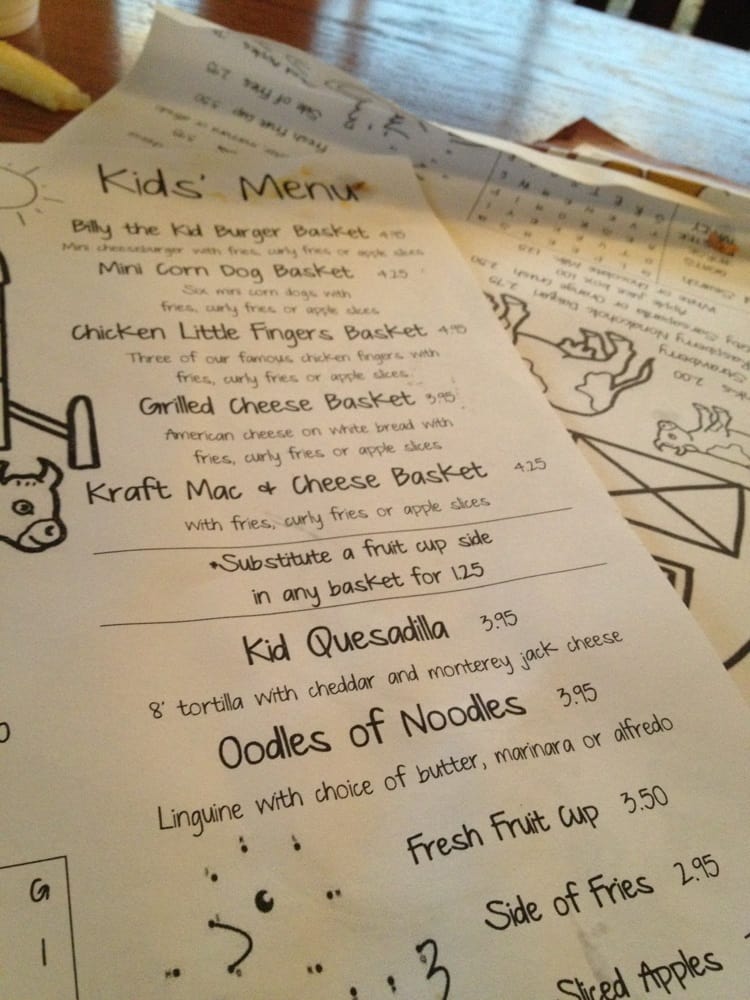 Kids' Menu
Billy the Kid Burger Basket 4.95
Mini cheeseburger with fries, curly fries or apple slices
Mini Corn Dog Basket 4.25
Six mini corn dogs with
fries, curly fries or apple slices
Chicken Little Fingers Basket 4.95
Three of our famous chicken fingers with
fries, curly fries or apple slices
Grilled Cheese Basket 3.95
American cheese on white bread with
fries, curly fries or apple slices
Kraft Mac & Cheese Basket 4.25
With fries, curly fries or apple slices
*Substitute a fruit cup side
in any basket for 1.25
Kid Quesadilla 3.95
8" tortilla with cheddar and monterey jack cheese
Oodles of Noodles 3.95
Linguine with choice of butter, marinara or alfredo
Fresh Fruit Cup 3.50
Side of Fries 2.95
Sliced Apples
G
I
3
Fresh Fruit Cup 3.50
Side of Fries 2.95
Strawberry
2.00